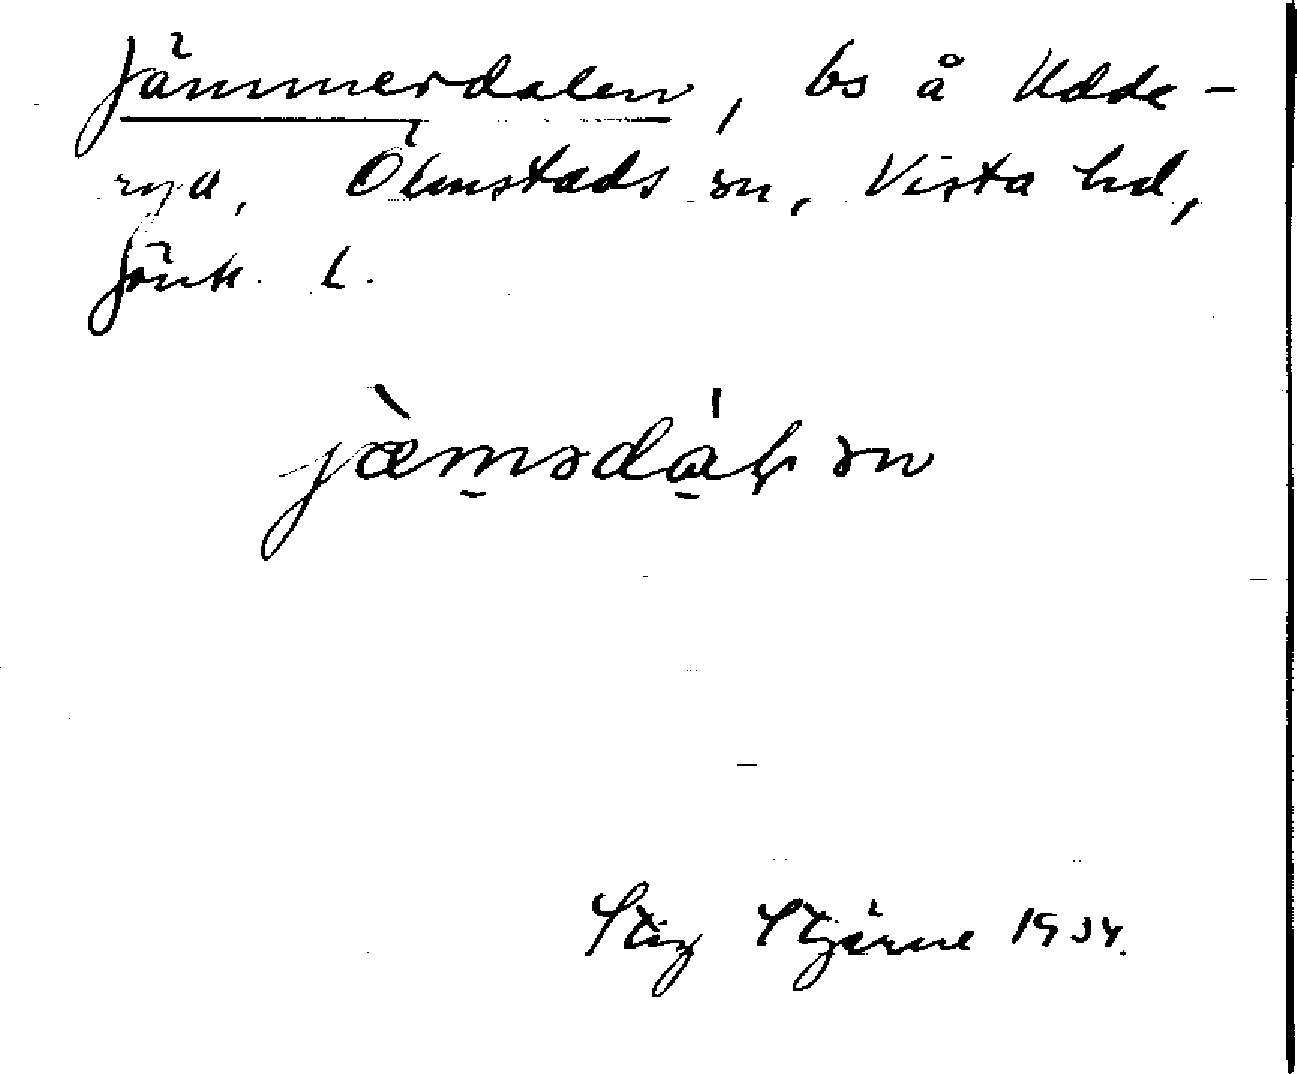 Jämmerdalen, bs å Udde-
ryd, Ölmstads sn, Vista hd,
Jönk. L.
Stig Stjärne 1934.